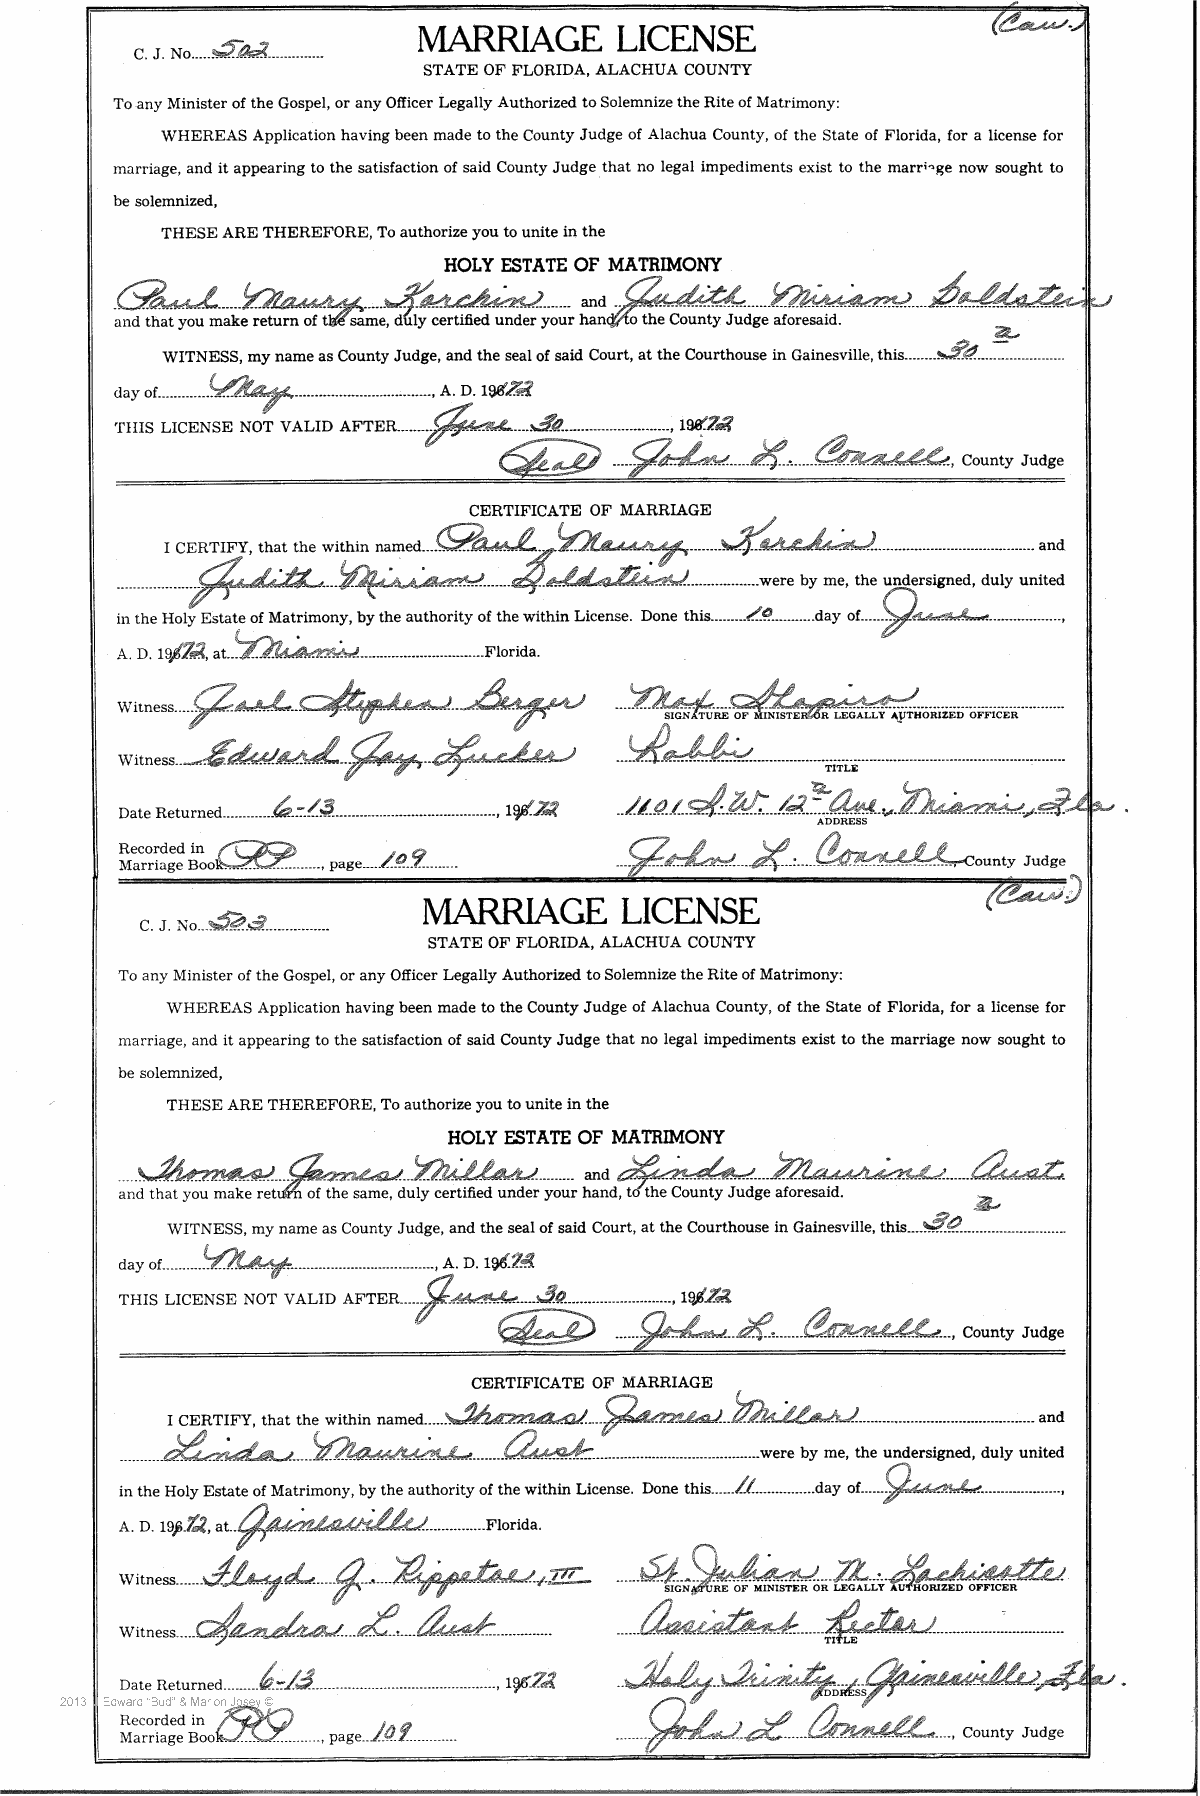 (Cau.)
C. J. No. 502
MARRIAGE LICENSE
STATE OF FLORIDA, ALACHUA COUNTY
To any Minister of the Gospel, or any Officer Legally Authorized to Solemnize the Rite of Matrimony:
WHEREAS Application having been made to the County Judge of Alachua County, of the State of Florida, for a license for
marriage, and it appearing to the satisfaction of said County Judge that no legal impediments exist to the marriage now sought to
be solemnized,
THESE ARE THEREFORE, To authorize you to unite in the
HOLY ESTATE OF MATRIMONY
Paul Maury Korchin and Judith Miriam Goldstein
and that you make return of the same, duly certified under your hand, to the County Judge aforesaid.
WITNESS, my name as County Judge, and the seal of said Court, at the Courthouse in Gainesville, this 30
day of May, A. D. 19672
THIS LICENSE NOT VALID AFTER June 30, 19672
(Seal) John L. Connell, County Judge
CERTIFICATE OF MARRIAGE
I CERTIFY, that the within named Paul Maury Korchin and
Judith Miriam Goldstein were by me, the undersigned, duly united
in the Holy Estate of Matrimony, by the authority of the within License. Done this 10 day of June,
A. D. 19672, at Miami Florida.
Witness Joel Stephen Berger Max Shapiro
SIGNATURE OF MINISTER OR LEGALLY AUTHORIZED OFFICER
Witness Edward Jay Lucker Rabbi
TITLE
Date Returned 6-13, 19672 1101 S.W. 12 Ave., Miami, Fla.
ADDRESS
Recorded in
Marriage Book PP, page 109 John L. Connell, County Judge
(Cau.)
C. J. No. 503
MARRIAGE LICENSE
STATE OF FLORIDA, ALACHUA COUNTY
To any Minister of the Gospel, or any Officer Legally Authorized to Solemnize the Rite of Matrimony:
WHEREAS Application having been made to the County Judge of Alachua County, of the State of Florida, for a license for
marriage, and it appearing to the satisfaction of said County Judge that no legal impediments exist to the marriage now sought to
be solemnized,
THESE ARE THEREFORE, To authorize you to unite in the
HOLY ESTATE OF MATRIMONY
Thomas James Millar and Linda Maurine Aust
and that you make return of the same, duly certified under your hand, to the County Judge aforesaid.
WITNESS, my name as County Judge, and the seal of said Court, at the Courthouse in Gainesville, this 30
day of May, A. D. 19672
THIS LICENSE NOT VALID AFTER June 30, 19672
(Seal) John L. Connell, County Judge
CERTIFICATE OF MARRIAGE
I CERTIFY, that the within named Thomas James Millar and
Linda Maurine Aust were by me, the undersigned, duly united
in the Holy Estate of Matrimony, by the authority of the within License. Done this 11 day of June,
A. D. 19672, at Gainesville Florida.
Witness Floyd G. Rippetoe, III St. Julian M. Lachicotte
SIGNATURE OF MINISTER OR LEGALLY AUTHORIZED OFFICER
Witness Sandra L. Aust Assistant Rector
TITLE
Date Returned 6-13, 19672 Holy Trinity, Gainesville, Fla.
ADDRESS
2013 Edward "Bud" & Marion Josey ©
Recorded in
Marriage Book PP, page 109 John L Connell, County Judge